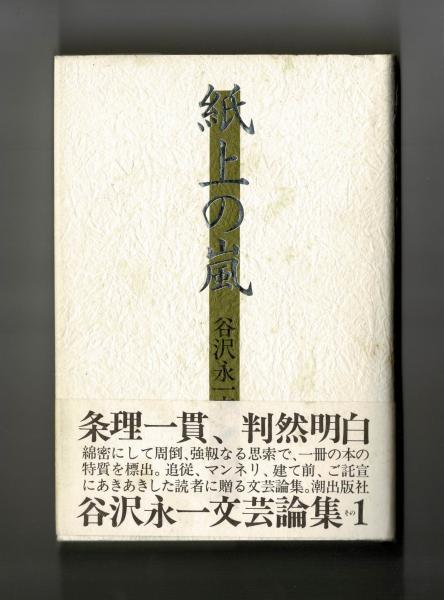 紙上の嵐
谷沢永一
条理一貫、判然明白
綿密にして周倒、強靱なる思索で、一冊の本の
特質を標出。追従、マンネリ、建て前、ご託宣
にあきあきした読者に贈る文芸論集。潮出版社
谷沢永一文芸論集その1